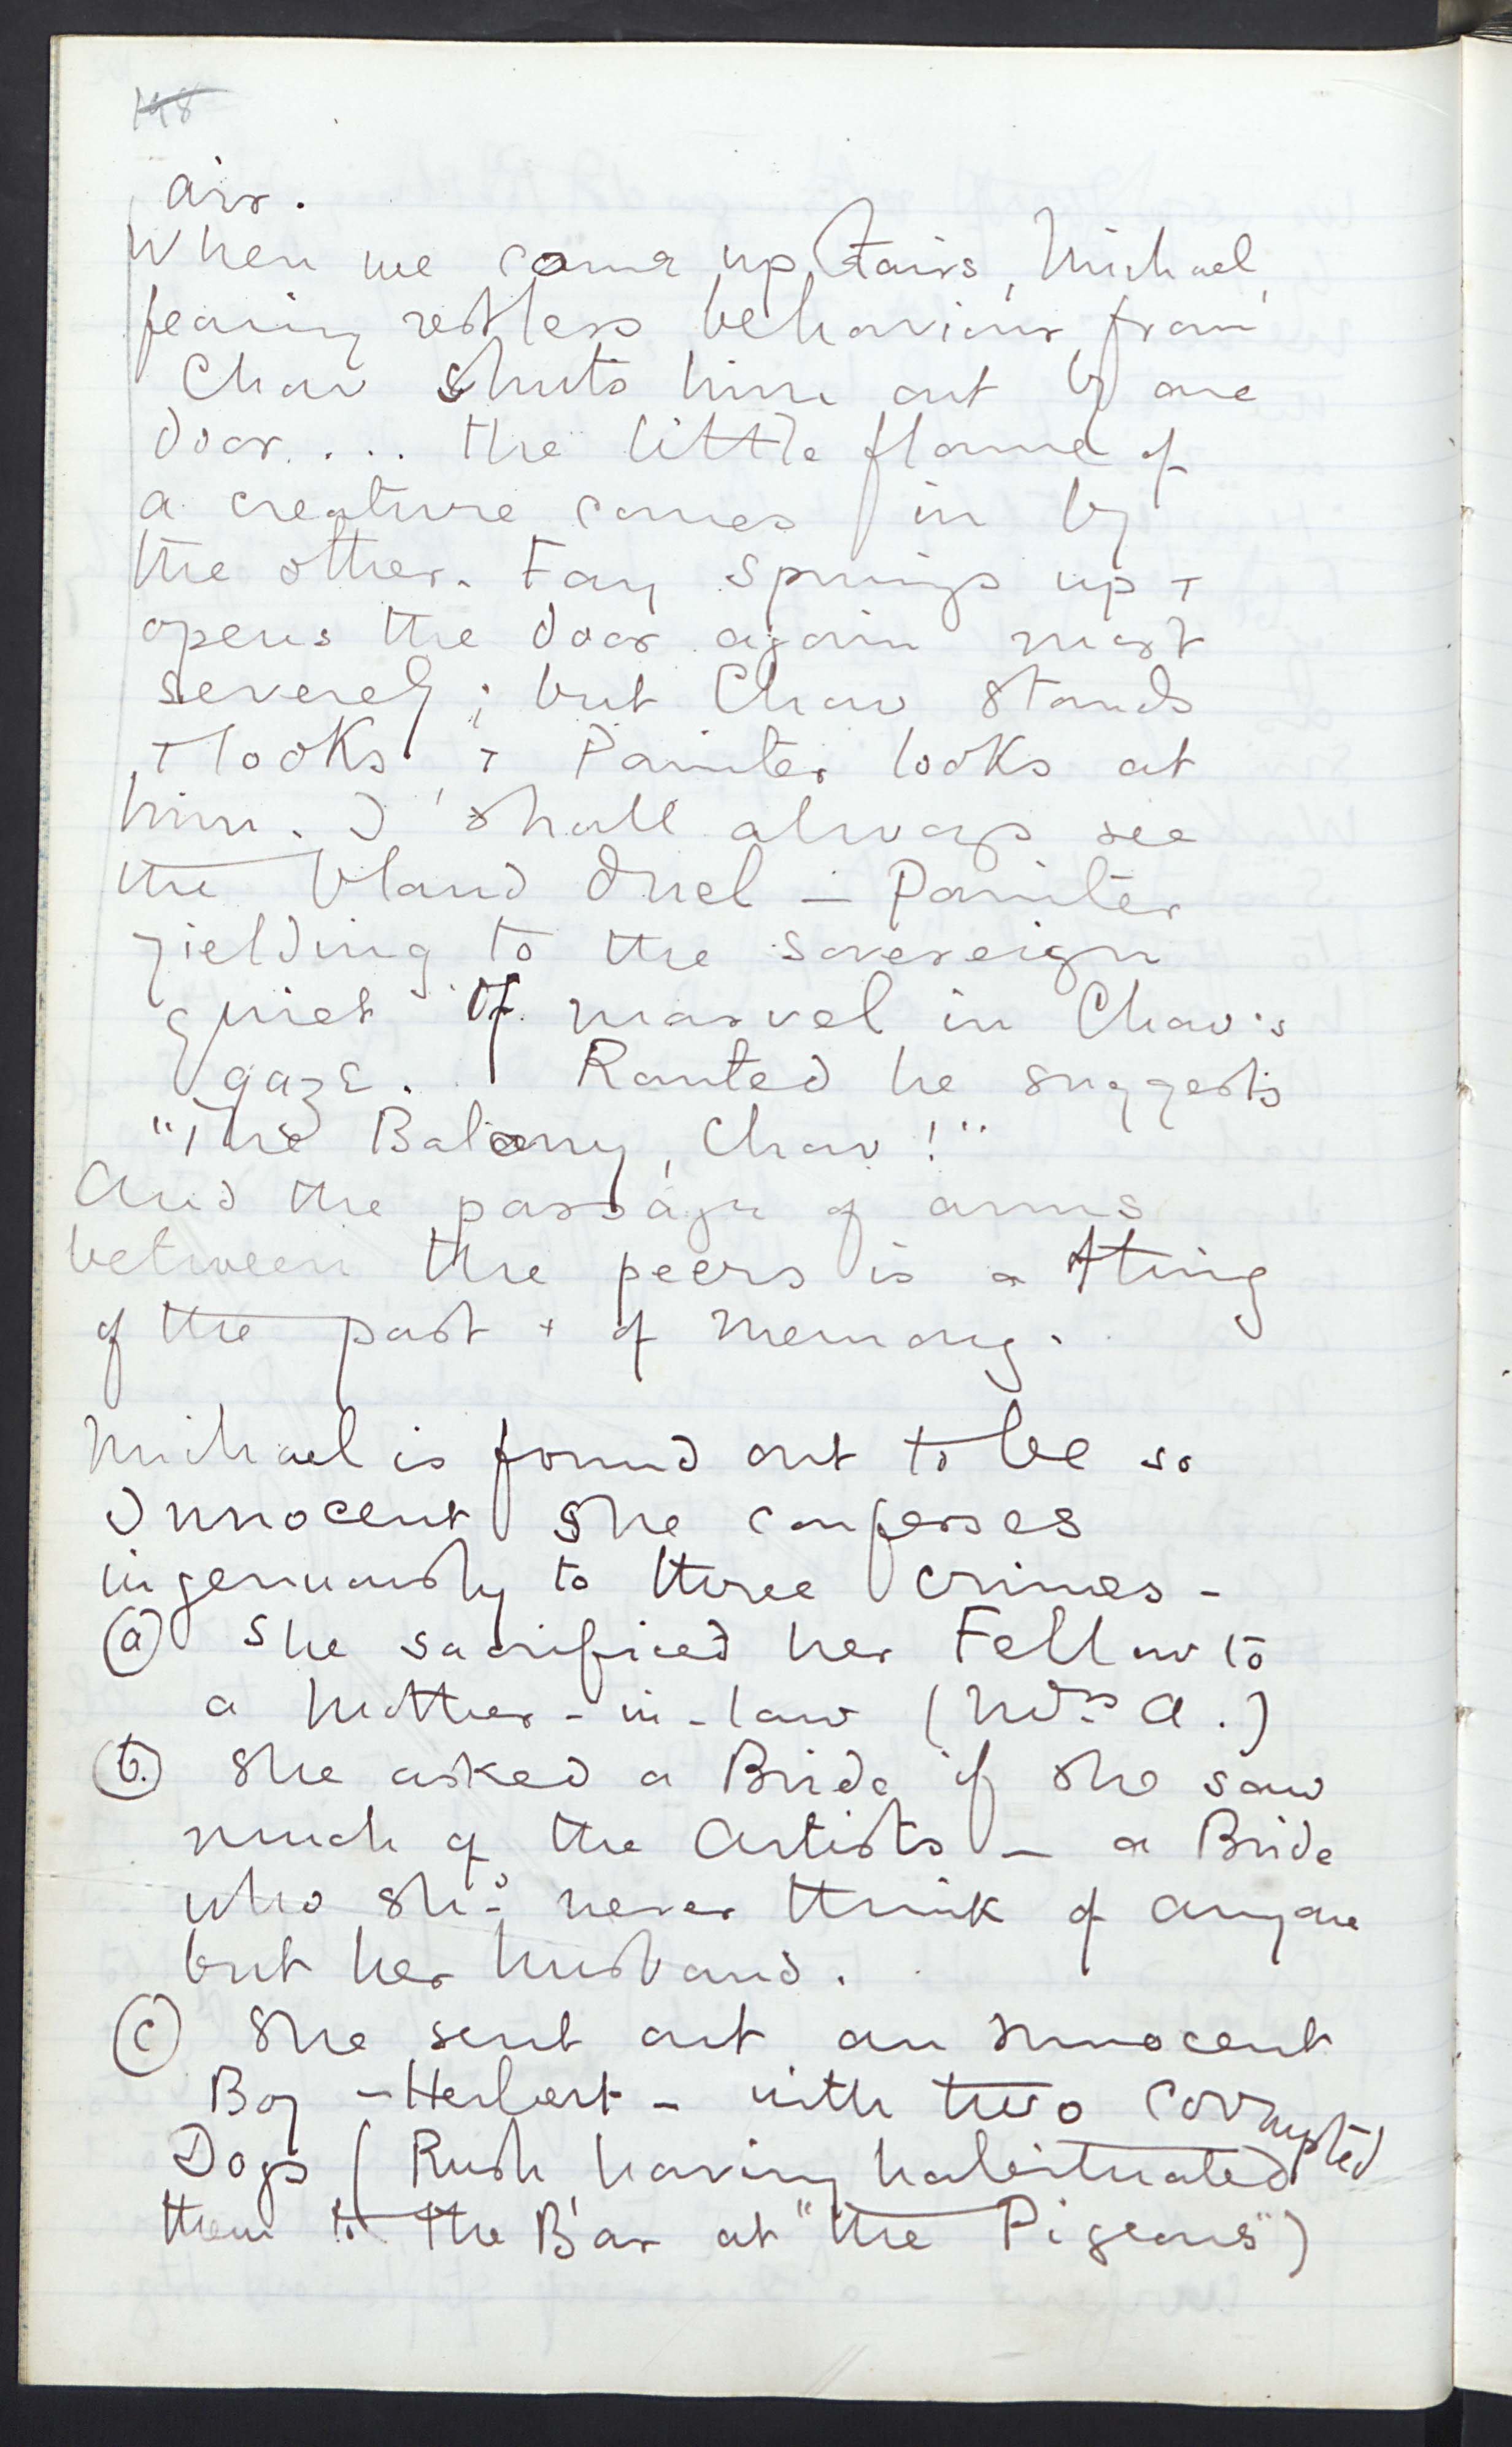 148
air.
When we come up stairs, Michael,
fearing restless behaviour from
Chow shuts him out by one
door. . . . the little flame of
a creature comes in by
the other. Fay springs up +
opens the door again most
severely; but Chow stands
+ looks, + Painter looks at
him. I shall always see
the bland duel – Painter
yielding to the sovereign
quiet of marvel in Chow's
gaze. Routed he suggests
"The Balcony, Chow!"
And the passage of arms
between the peers is a thing
of the past + of memory.
Michael is found out to be so
Innocent she confesses
ingenuously to three crimes –
(a) She sacrificed her Fellow to
a Mother-in-law (Mrs A.)
(b.) She asked a Bride if she saw
much of the Artists – a Bride
who shd never think of anyone
but her husband.
(c) She sent out an Innocent
Boy – Herbert – with two corrupted
Dogs (Rush having habituated
them to the Bar at "the Pigeons")